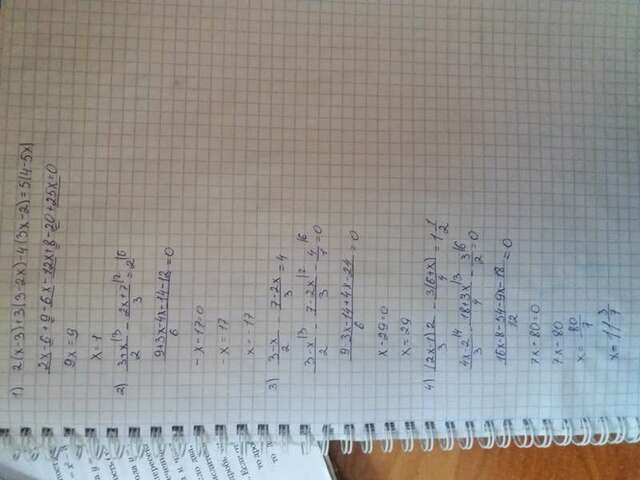 1) 2(x-3)+3(3-2x)-4(3x-2)=5(4-5x)
2x-6+9-6x-12x+8-20+25x=0
9x=9
x=1
2) (3+x)/2 |3 - (2x+7)/3 |2 = 2 |6
(9+3x-4x-14-12)/6 = 0
-x-17=0
-x=17
x=-17
3) (3-x)/2 - (7-2x)/3 = 4
(3-x)/2 |3 - (7-2x)/3 |2 - 4/1 |6 = 0
(9-3x-14+4x-24)/6 = 0
x-29=0
x=29
4) (2x-1)2/3 - 3(6+x)/4 = 1 1/2
(4x-2)/3 |4 - (18+3x)/4 |3 - 3/2 |6 = 0
(16x-8-54-9x-18)/12 = 0
7x-80=0
7x=80
x=80/7
x=11 3/7